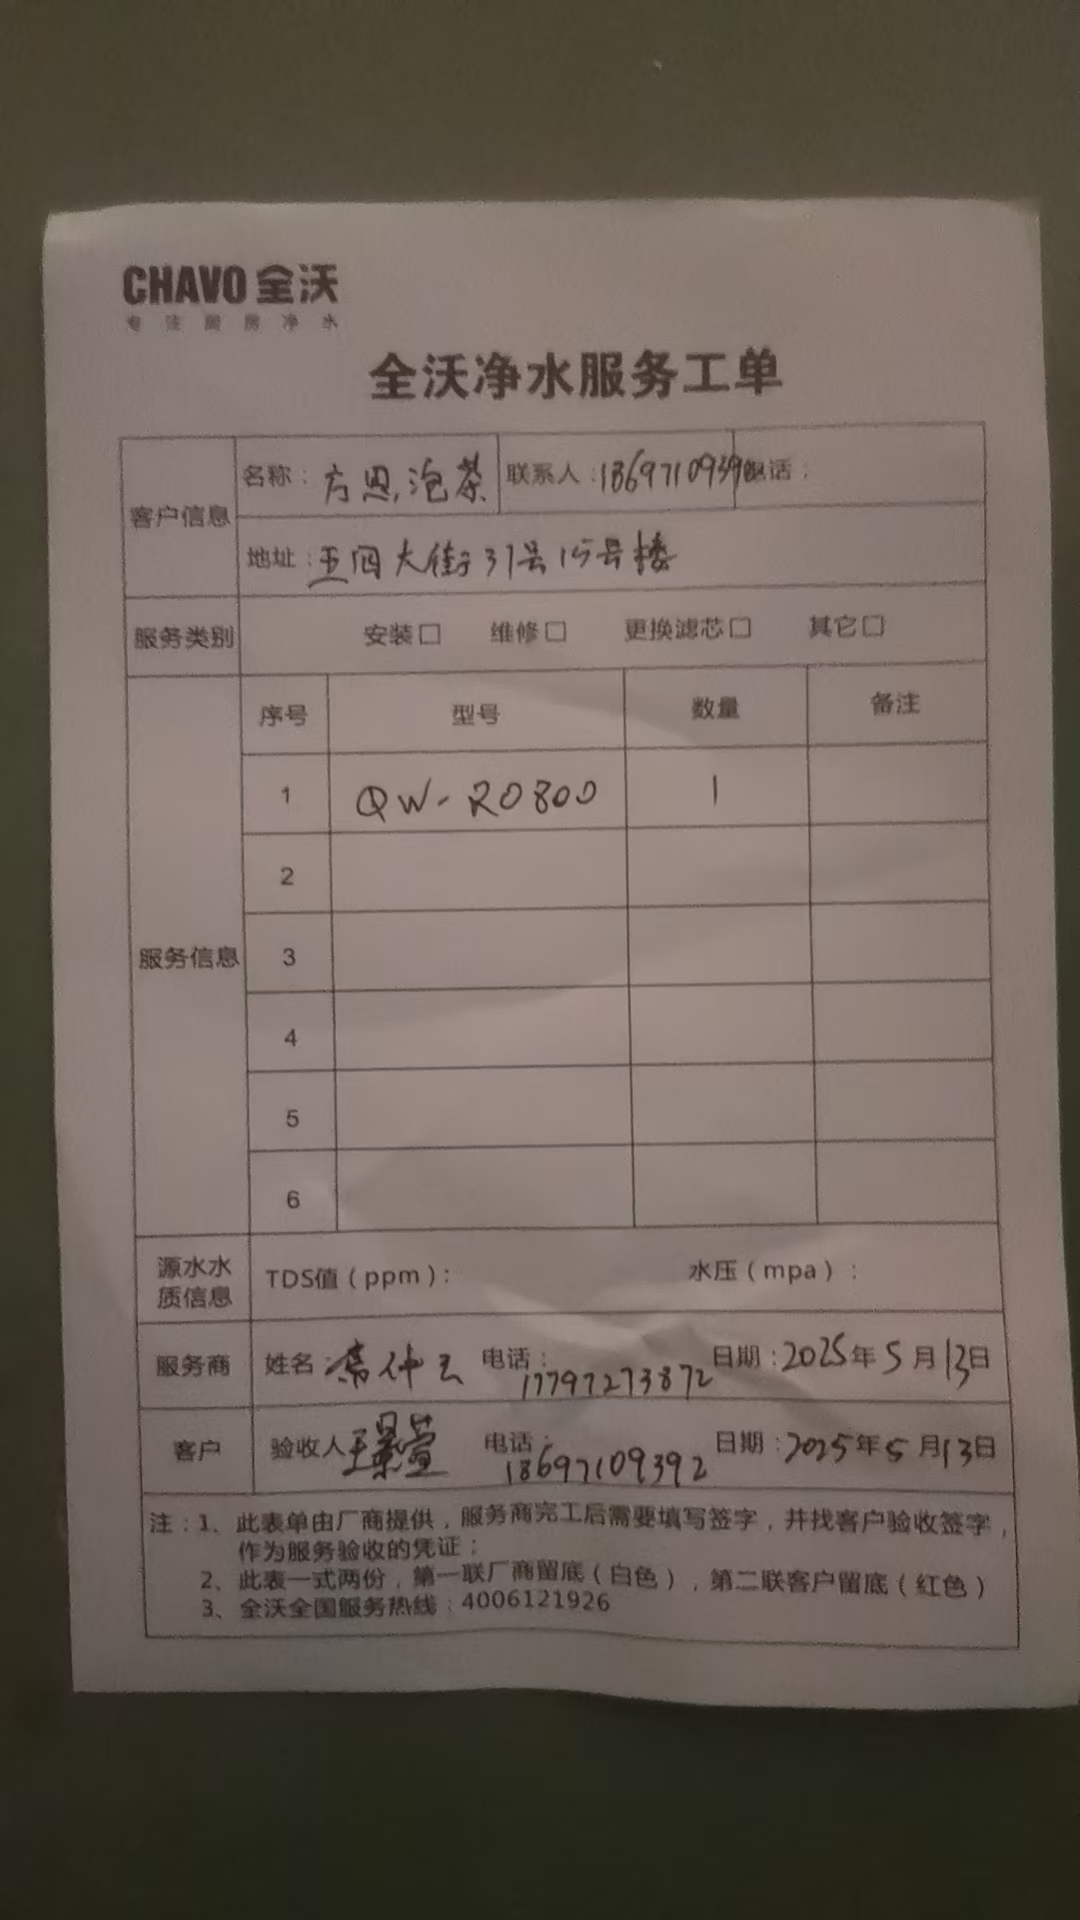 CHAVO 全沃
专注厨房净水
全沃净水服务工单
客户信息
名称：方恩，泡茶 联系人：1869710939 电话：
地址：五四大街37号15号楼
服务类别 安装□ 维修□ 更换滤芯□ 其它□
服务信息
序号 型号 数量 备注
1 QW-RO800 1
2
3
4
5
6
源水水质信息 TDS值（ppm）： 水压（mpa）：
服务商 姓名： 电话：17797273872 日期：2025年5月13日
客户 验收人 王景萱 电话：18697109392 日期：2025年5月13日
注：1、此表单由厂商提供，服务商完工后需要填写签字，并找客户验收签字，
作为服务验收的凭证；
2、此表一式两份，第一联厂商留底（白色），第二联客户留底（红色）
3、全沃全国服务热线：4006121926